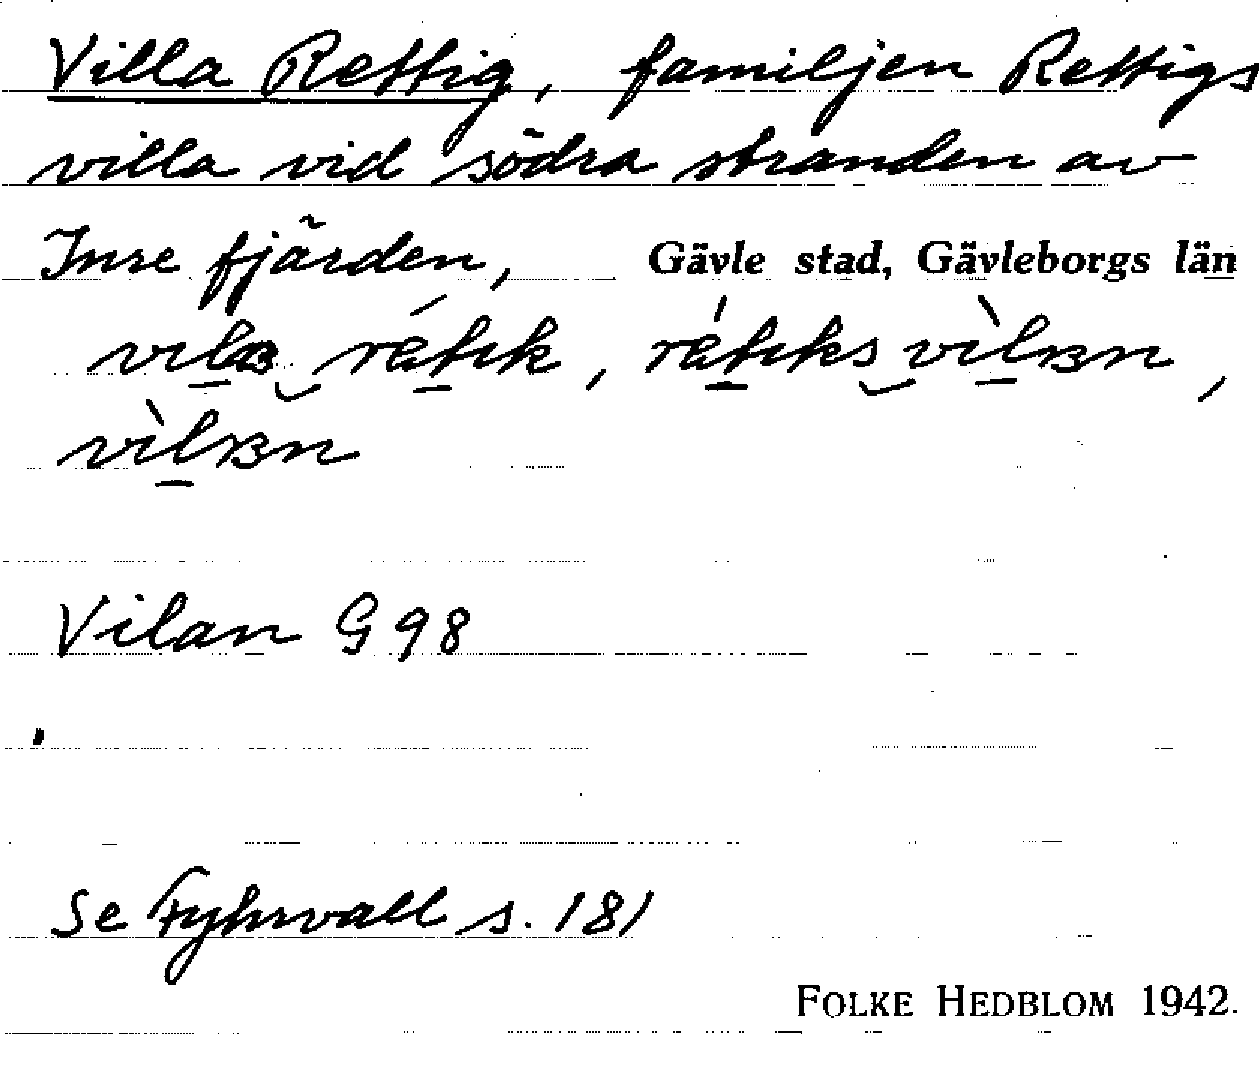 Villa Rettig, familjen Rettigs
villa vid södra stranden av
Inre fjärden, Gävle stad, Gävleborgs län
Vilan G 98
Se Fyhrvall s. 181
FOLKE HEDBLOM 1942.